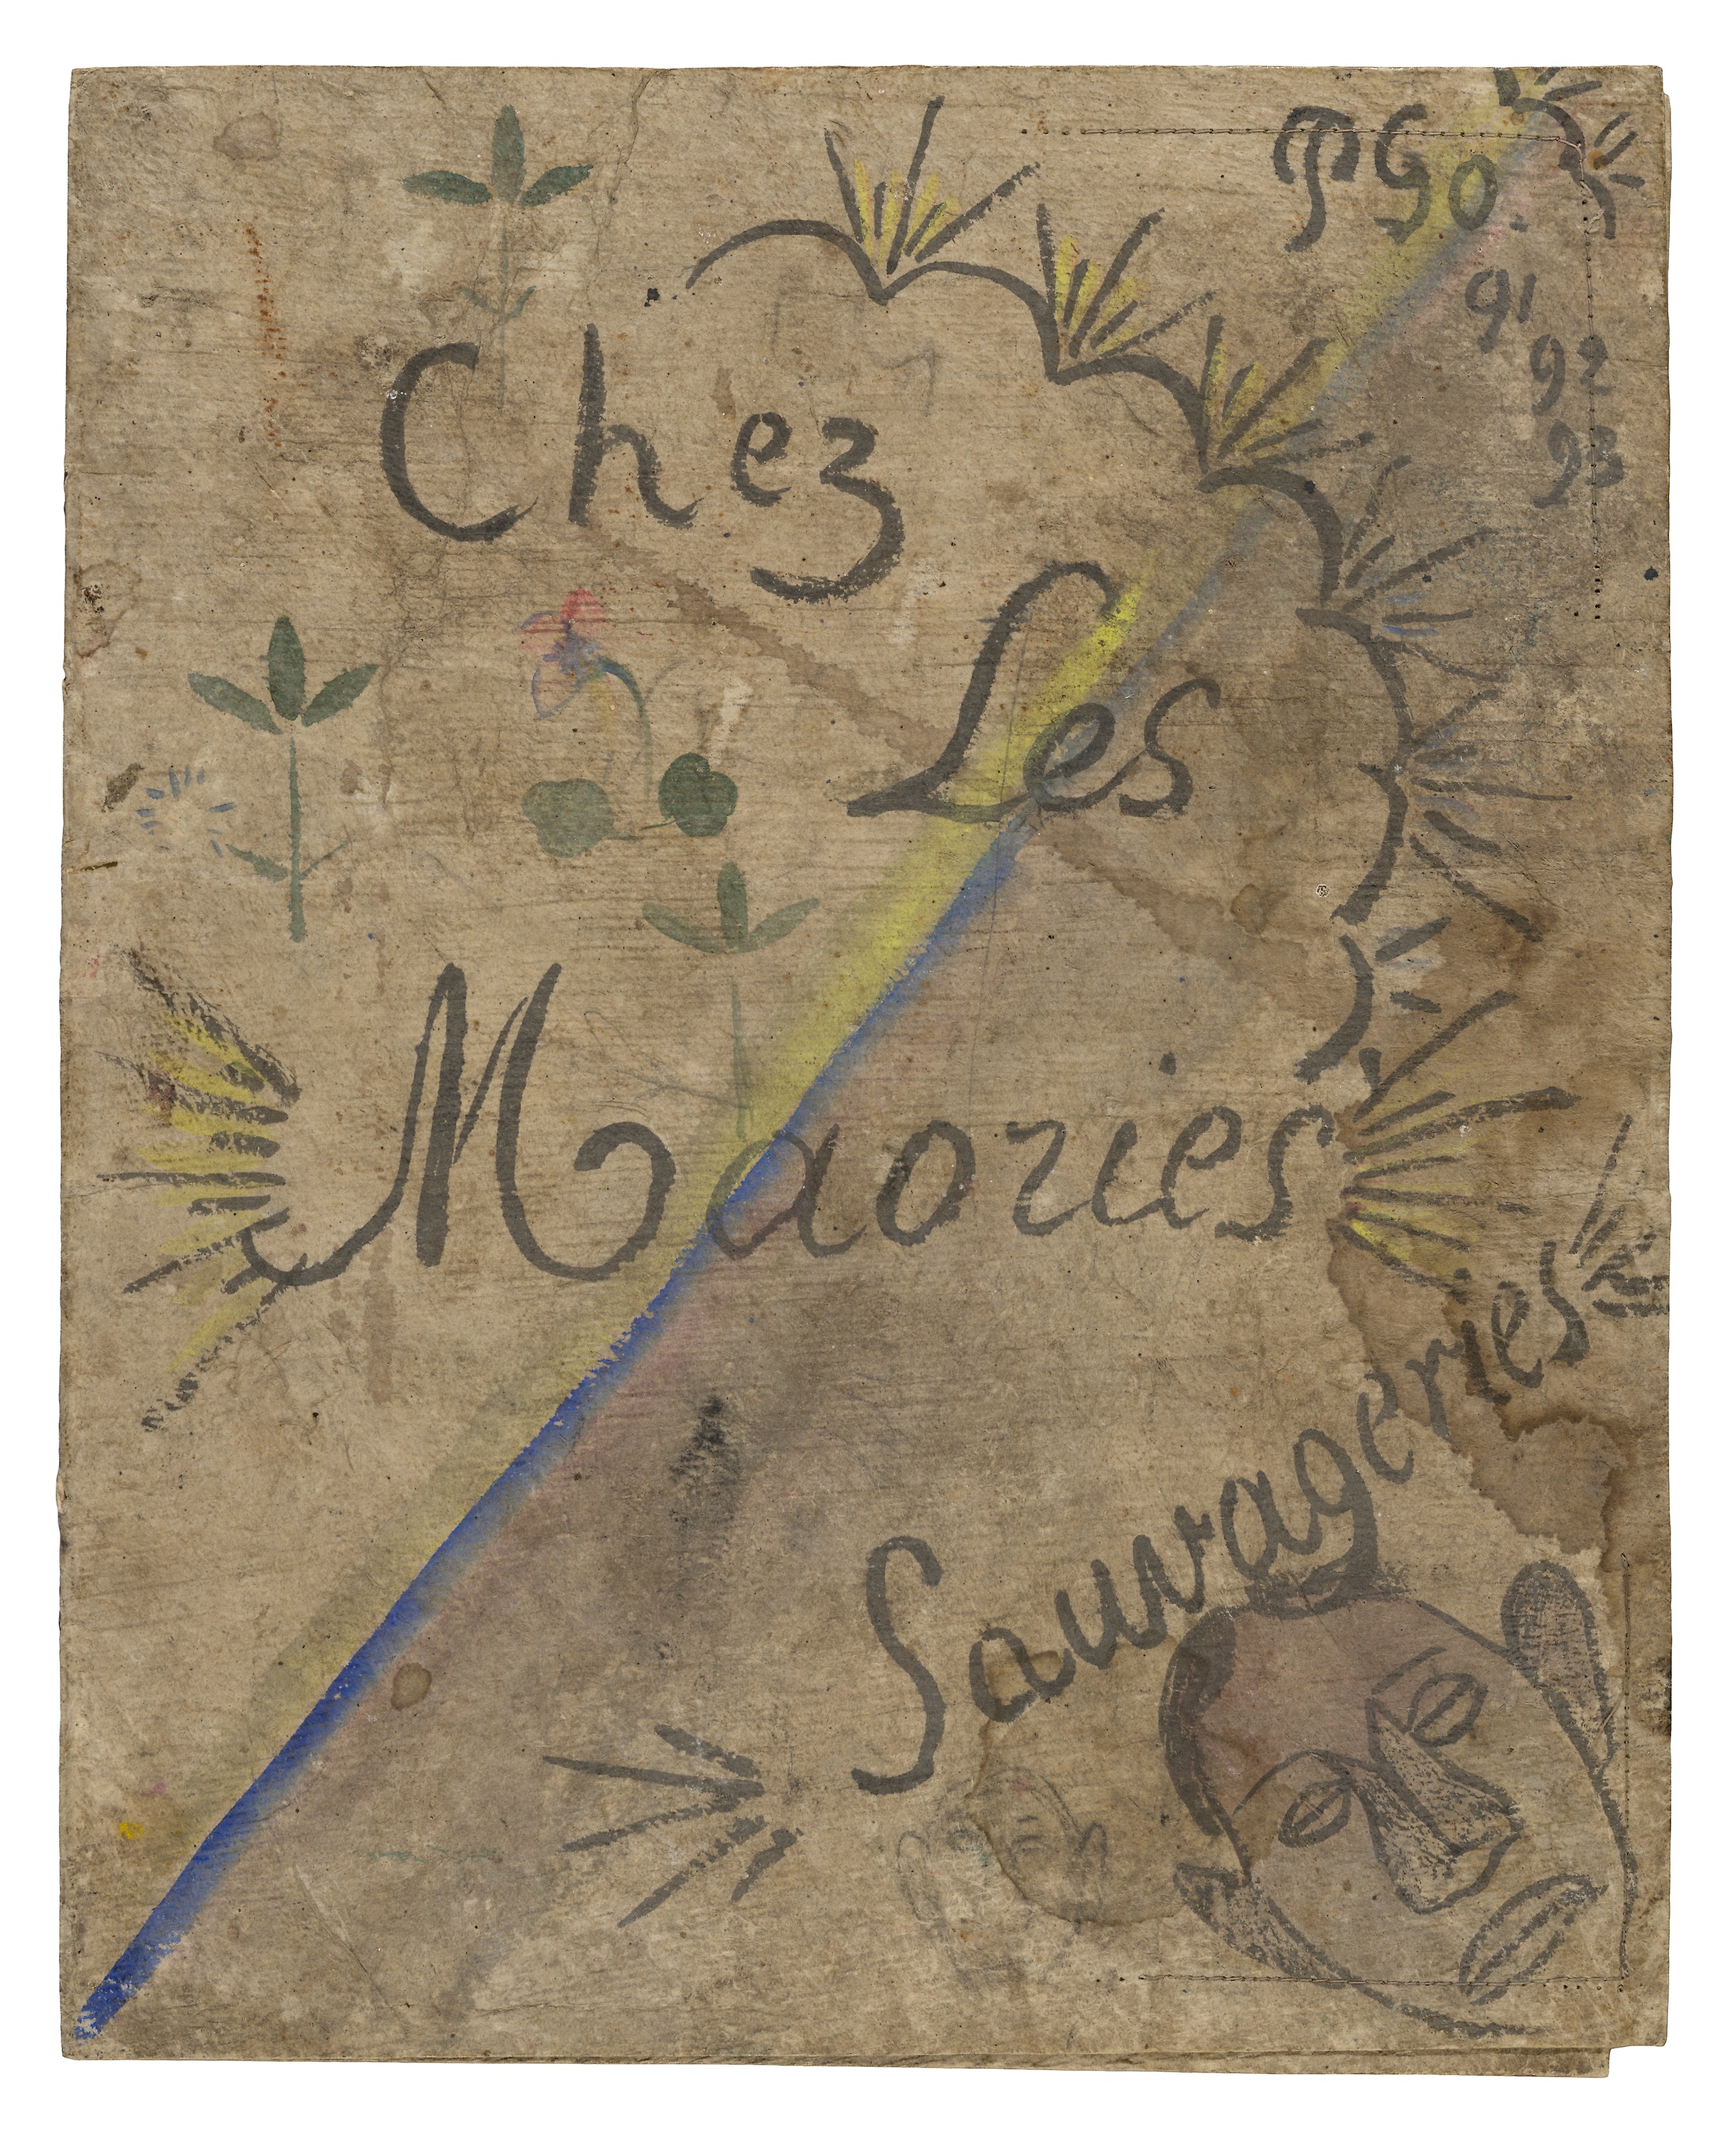 PGO.
91
92
93
Chez
Les
Maories
Sauvageries